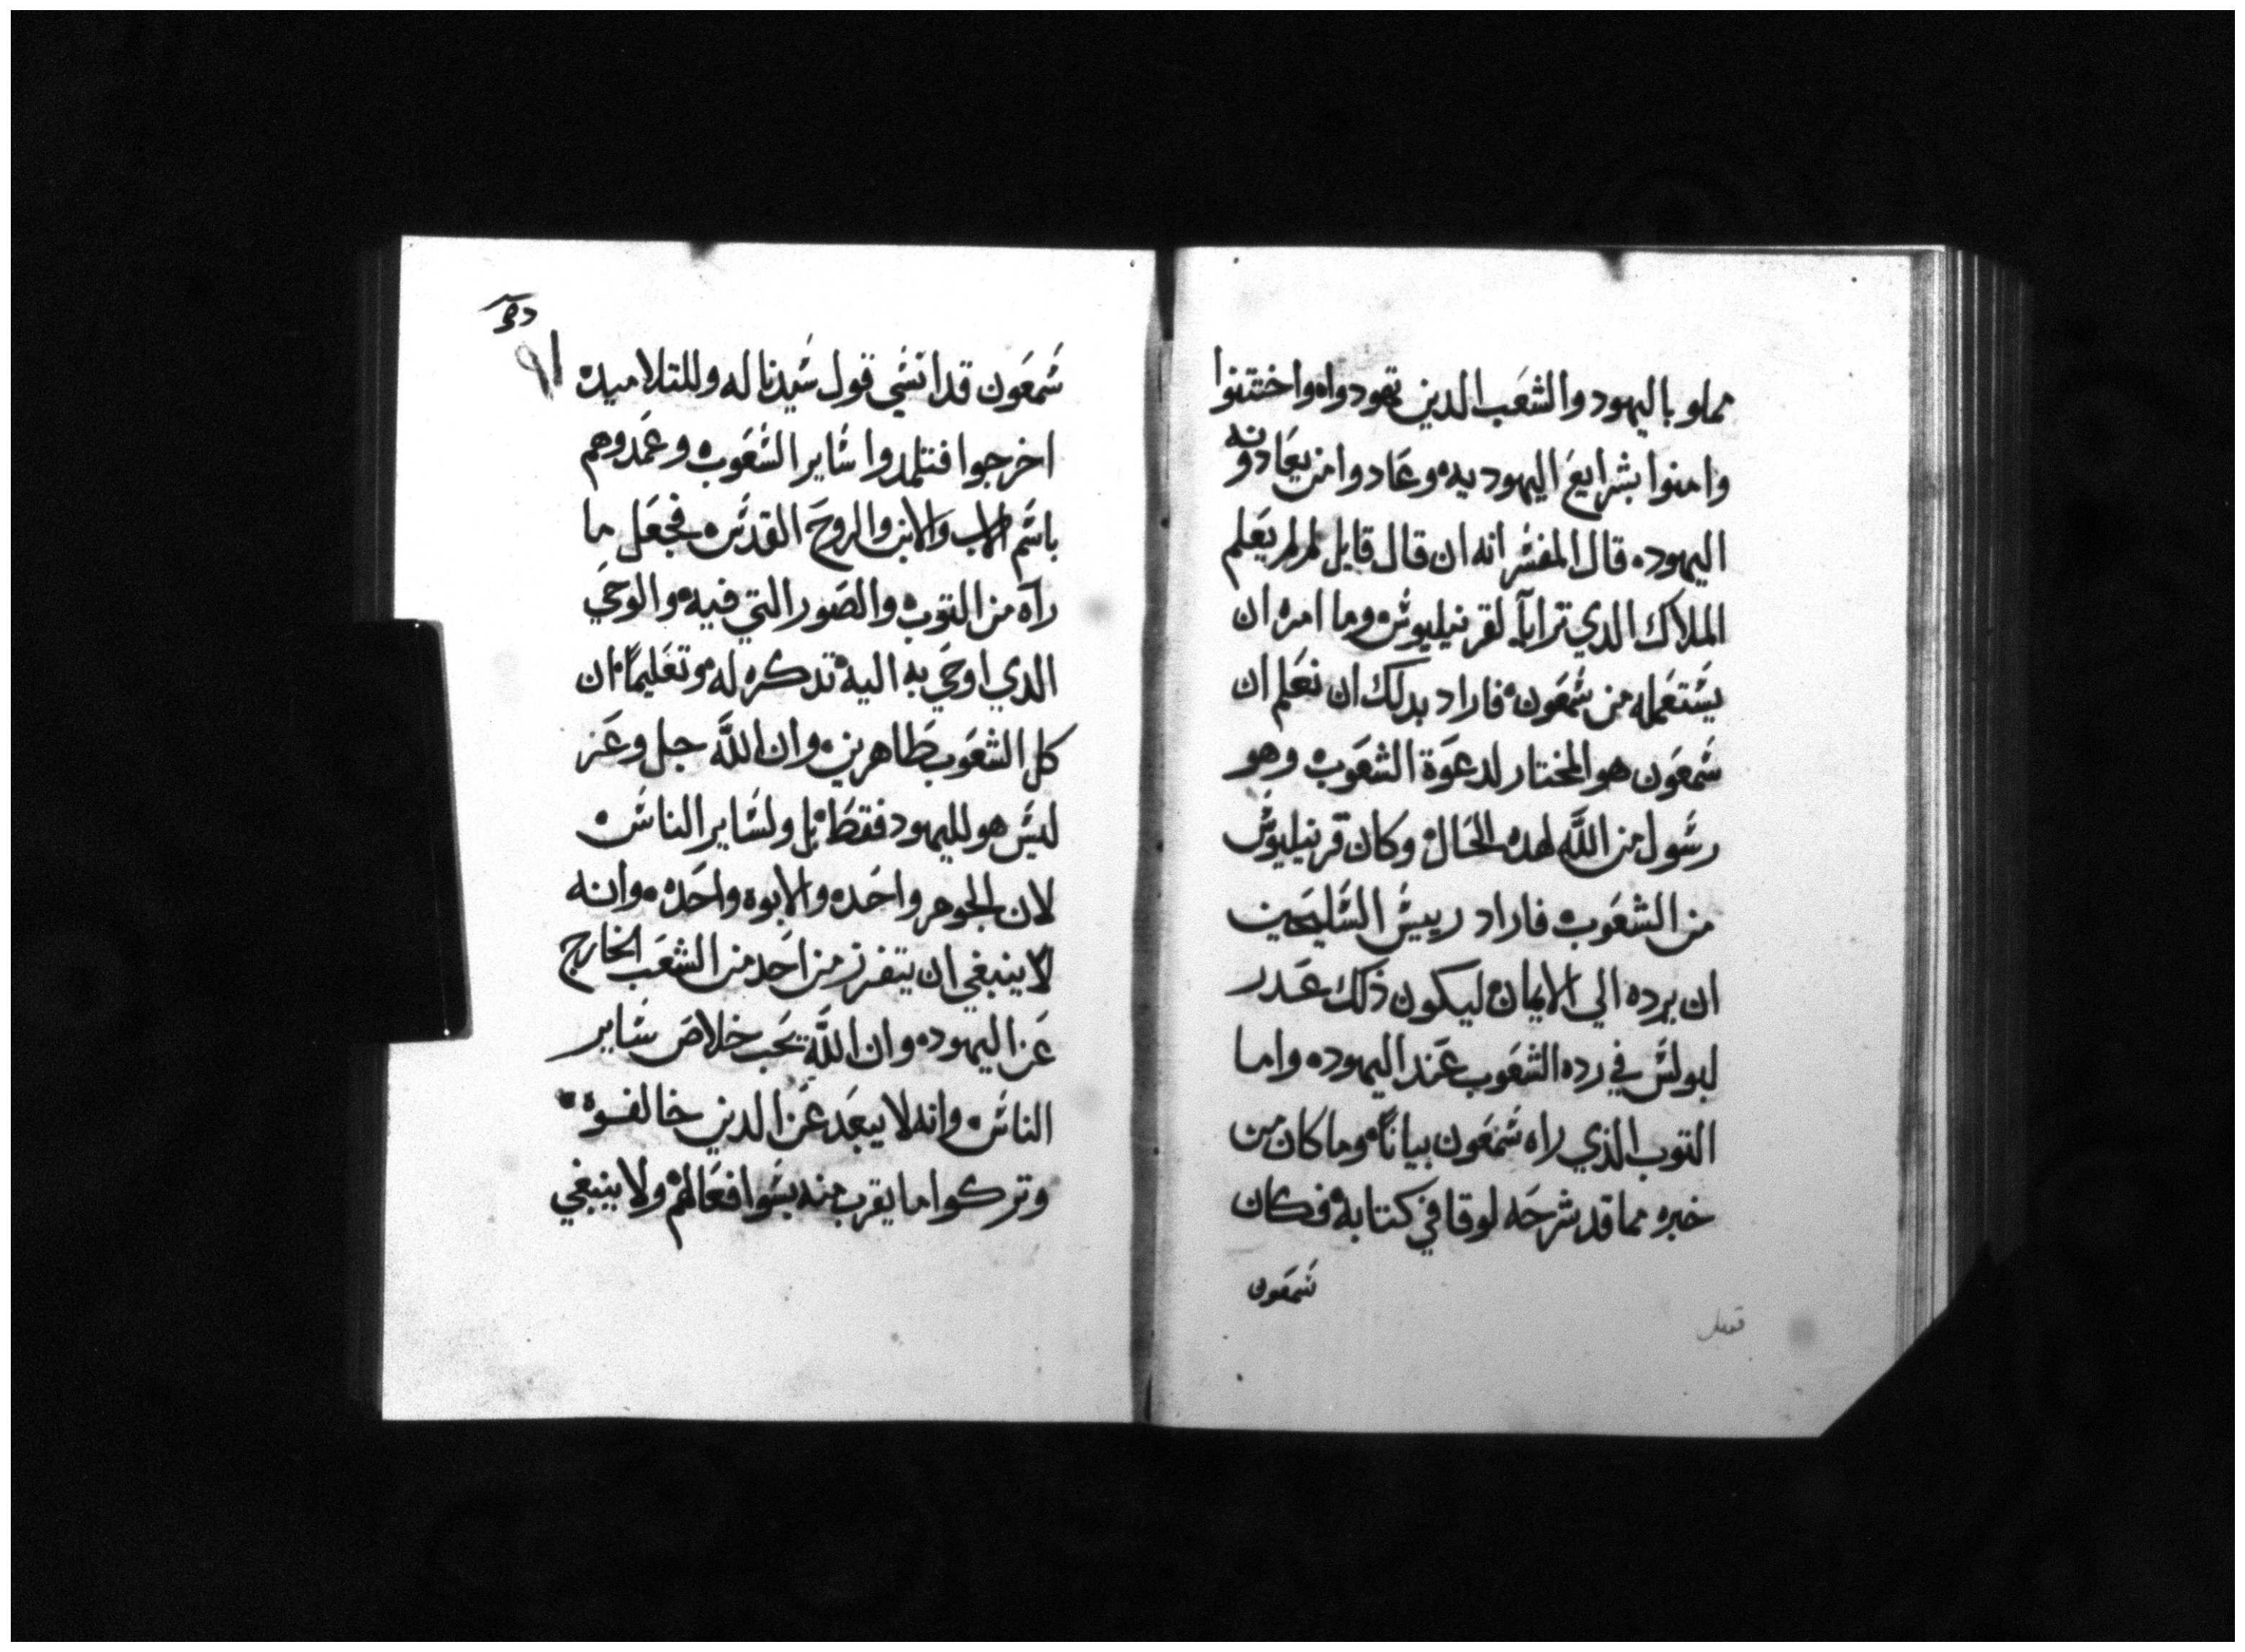 مملو باليهود والشعب الدين تهودواه واختتنوا
وامنوا بشرايع اليهوديه وعادوا من يعادونه
اليهوده قال المفسر انه ان قال قايل لم لم يعلم
الملاك الدي ترايآ لقرنيليوس وما امره ان
يستعمله من شمعون فاراد بدلك ان نعلم ان
شمعون هو المختار لدعوة الشعوب وهو
رسول من الله لهده الحال وكان قرنيليوس
من الشعوب فاراد رييس السليحين
ان يرده الي الايمان ليكون ذلك عدر
لبولس في رده الشعوب عند اليهوده واما
التوب الذي راه شمعون بياناً وما كان من
خبره مما قد شرحه لوقا في كتابه فكان
شمعون
شمعون قد انسي قول سيدنا له وللتلاميده
اخرجوا فتلمدوا ساير الشعوب وعمدوهم
باسم الاب والابن والروح القدس فجعل ما
راه من التوب والصور التي فيه والوحي
الدي اوحي به اليه تدكره له وتعليماً ان
كل الشعوب طاهرين وان الله جل وعز
ليس هو لليهود فقط بل ولساير الناس
لان الجوهر واحده والابوه واحده وانه
لا ينبغي ان يتفرز من احد من الشعب الخارج
عن اليهوده وان الله يحب خلاص ساير
الناس وانه لا يبعد عن الدين خالفوه
وتركوا ما يقرب منه بسوا فعالهم ولا ينبغي